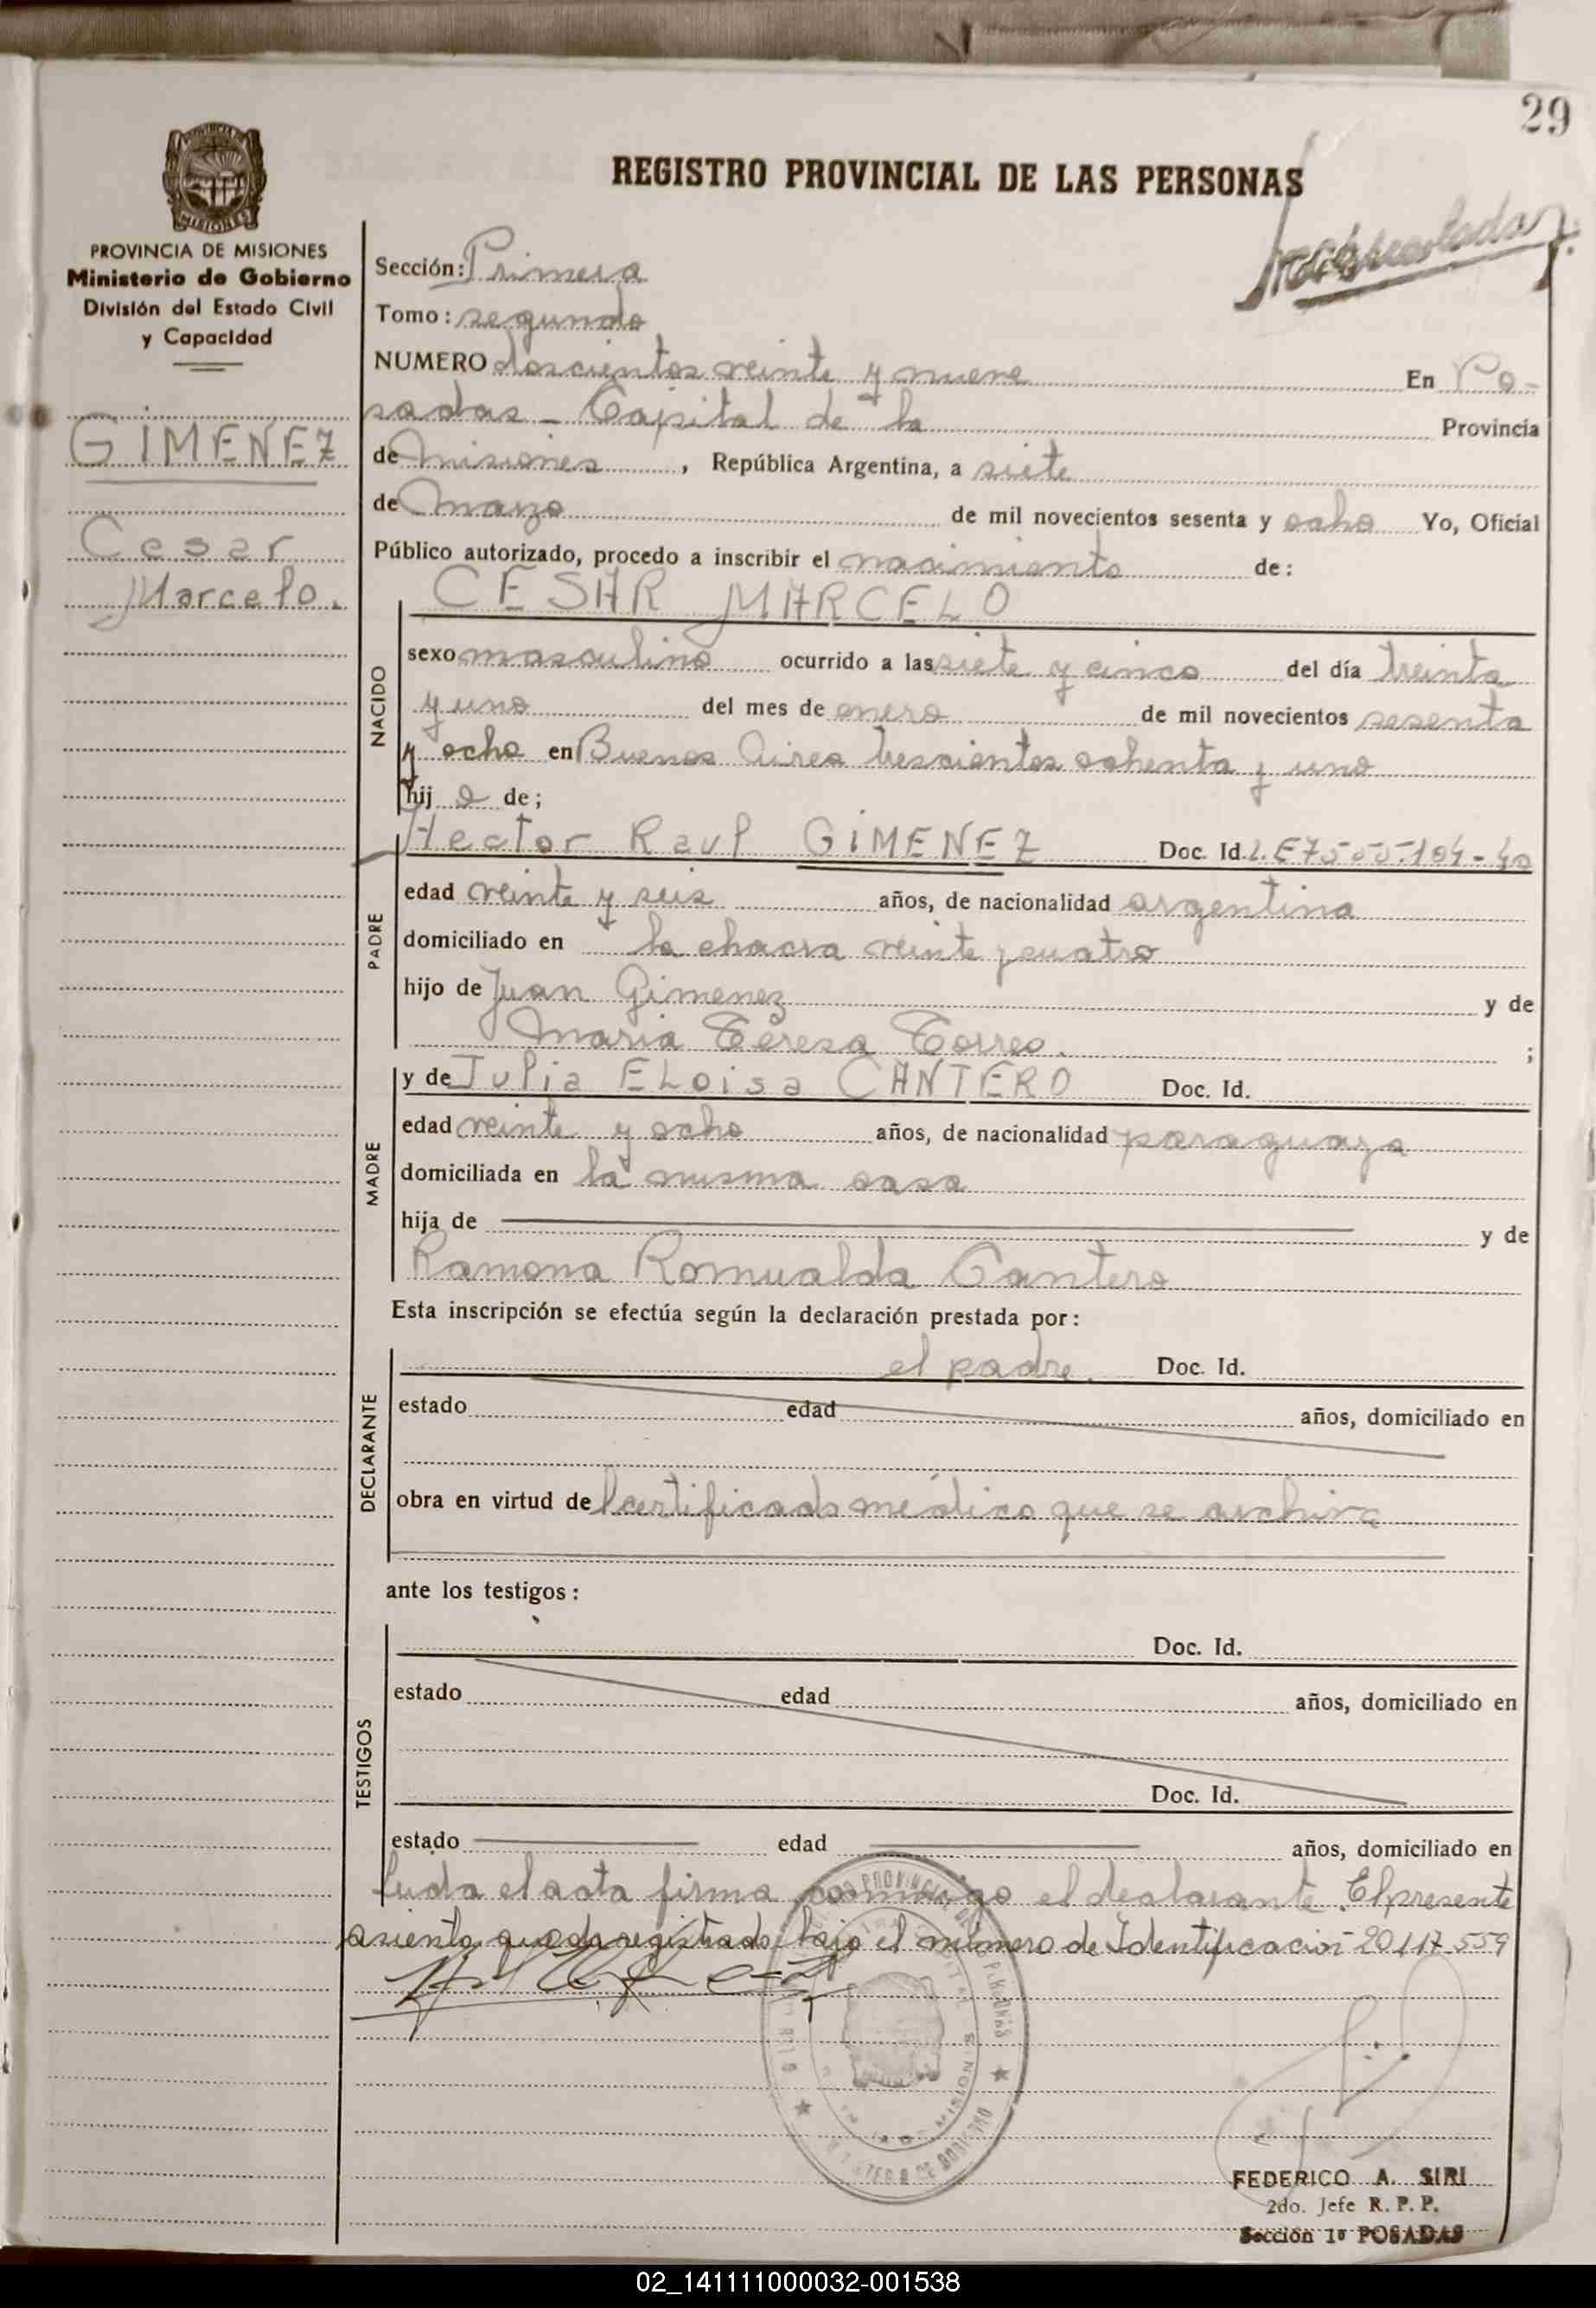 29
REGISTRO PROVINCIAL DE LAS PERSONAS
PROVINCIA DE MISIONES
Ministerio de Gobierno
División del Estado Civil
y Capacidad
GIMENEZ
Cesar
Marcelo.
Sección: Primera
Tomo: segundo
NUMERO doscientos veinte y nueve En Po-
sadas - Capital de la Provincia
de Misiones, República Argentina, a siete
de Marzo de mil novecientos sesenta y ocho Yo, Oficial
Público autorizado, procedo a inscribir el nacimiento de:
CESAR MARCELO
NACIDO
sexo masculino ocurrido a las siete y cinco del día treinta
y uno del mes de enero de mil novecientos sesenta
y ocho en Buenos Aires trescientos ochenta y uno
hij o de;
Hector Raul GIMENEZ Doc. Id. L.E
PADRE
edad veinte y seis años, de nacionalidad argentina
domiciliado en la chacra veinte y cuatro
hijo de Juan Gimenez y de
Maria Teresa Torres. ;
y de Julia ELoisa CANTERO Doc. Id.
MADRE
edad veinte y ocho años, de nacionalidad paraguaya
domiciliada en la misma casa
hija de y de
Ramona Romualda Cantero
Esta inscripción se efectúa según la declaración prestada por:
el padre. Doc. Id.
DECLARANTE
estado edad años, domiciliado en
obra en virtud del certificado médico que se archiva
ante los testigos:
Doc. Id.
TESTIGOS
estado edad años, domiciliado en
Doc. Id.
estado edad años, domiciliado en
Leida el acta firma conmigo el declarante. El presente
asiento queda registrado bajo el número de Identificación 20.117.559
FEDERICO A. SIRI
2do. Jefe R. P. P.
Sección 1ª POSADAS
02_141111000032-001538